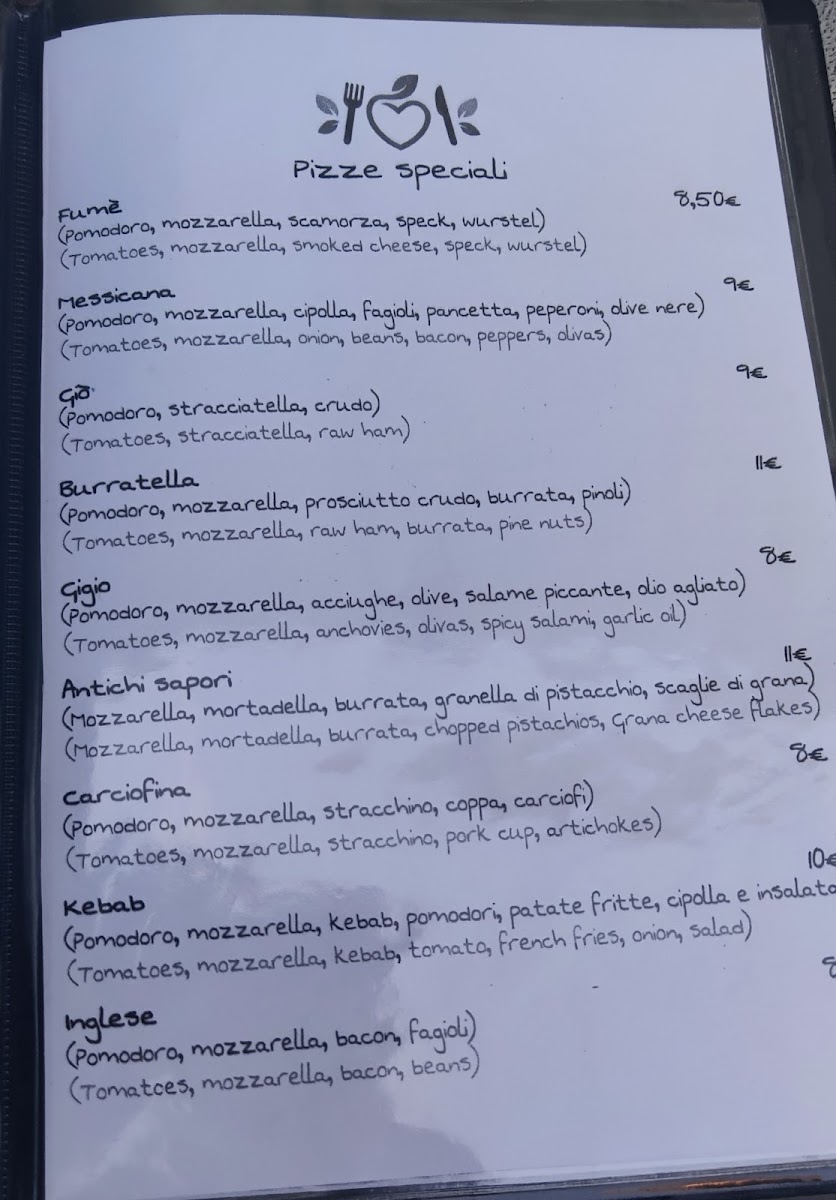 Pizze speciali
Fumè 8,50€
(Pomodoro, mozzarella, scamorza, speck, wurstel)
(Tomatoes, mozzarella, smoked cheese, speck, wurstel)
Messicana 9€
(Pomodoro, mozzarella, cipolla, fagioli, pancetta, peperoni, olive nere)
(Tomatoes, mozzarella, onion, beans, bacon, peppers, olivas)
Giò 9€
(Pomodoro, stracciatella, crudo)
(Tomatoes, stracciatella, raw ham)
Burratella 11€
(Pomodoro, mozzarella, prosciutto crudo, burrata, pinoli)
(Tomatoes, mozzarella, raw ham, burrata, pine nuts)
Gigio 8€
(Pomodoro, mozzarella, acciughe, olive, salame piccante, olio agliato)
(Tomatoes, mozzarella, anchovies, olivas, spicy salami, garlic oil)
Antichi sapori 11€
(Mozzarella, mortadella, burrata, granella di pistacchio, scaglie di grana)
(Mozzarella, mortadella, burrata, chopped pistachios, Grana cheese flakes)
Carciofina 8€
(Pomodoro, mozzarella, stracchino, coppa, carciofi)
(Tomatoes, mozzarella, stracchino, pork cup, artichokes)
Kebab 10€
(Pomodoro, mozzarella, kebab, pomodori, patate fritte, cipolla e insalata
(Tomatoes, mozzarella, kebab, tomato, french fries, onion, salad)
Inglese
(Pomodoro, mozzarella, bacon, fagioli)
(Tomatoes, mozzarella, bacon, beans)